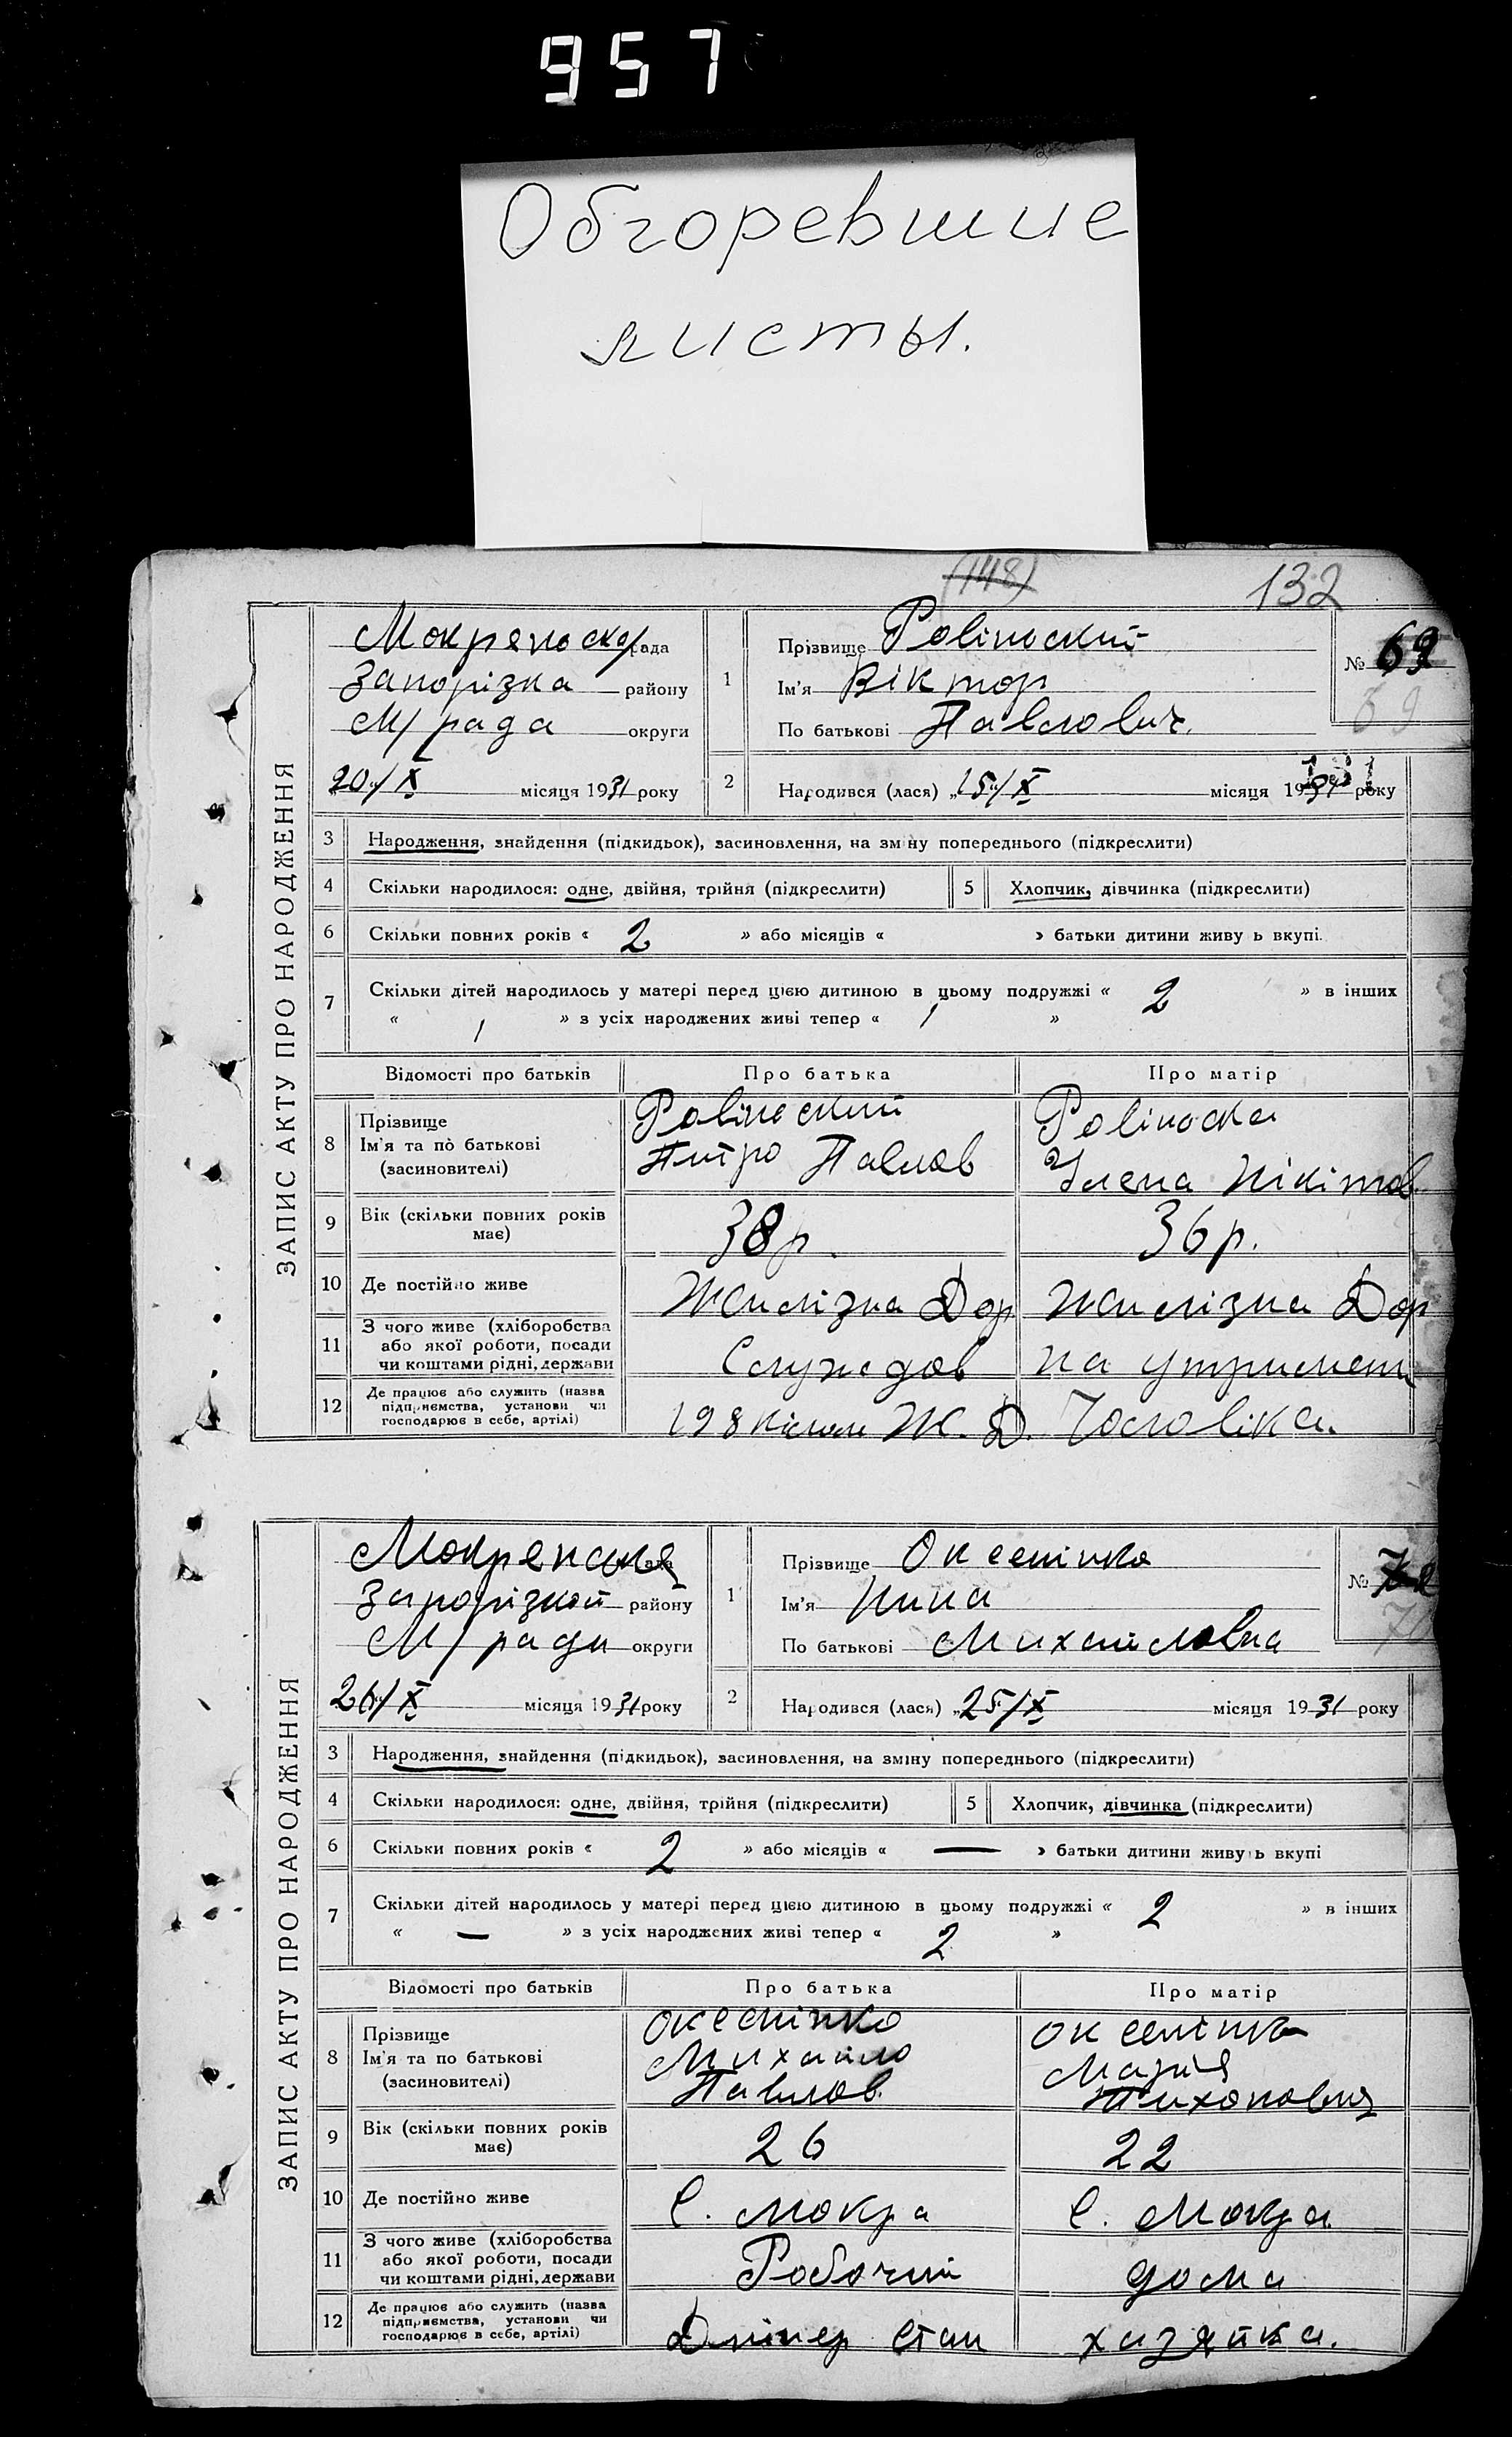 957
Обгоревшие
листы.
(148)
132
ЗАПИС АКТУ ПРО НАРОДЖЕННЯ
рада
Запорізка району
М/рада округи
20/X місяця 1931 року
1
Прізвище Ровіноский
Ім'я Віктор
По батькові Павлович.
№ 69
69
2 Народився (лася) „15/X місяця 1931 року
3 Народження, знайдення (підкидьок), засиновлення, на зміну попереднього (підкреслити)
4 Скільки народилося: одне, двійня, трійня (підкреслити) 5 Хлопчик, дівчинка (підкреслити)
6 Скільки повних років « 2 » або місяців « » батьки дитини живуть вкупі.
7 Скільки дітей народилось у матері перед цією дитиною в цьому подружжі « 2 » в інших
« 1 » з усіх народжених живі тепер « 1 »
Відомості про батьків Про батька Про матір
8 Прізвище
Ім'я та по батькові
(засиновителі)
Павлов
Ровіноска
9 Вік (скільки повних років
має)
38р.
36р.
10 Де постійно живе
Желізна Дор
Желізна Дор
11 З чого живе (хліборобства
або якої роботи, посади
чи коштами рідні, держави
на
12 Де працює або служить (назва
підприємства, установи чи
господарює в себе, артілі)
198 Ж. Д.
Чоловіка.
ЗАПИС АКТУ ПРО НАРОДЖЕННЯ
рада
Запорізкой району
М/ради округи
26/X місяця 1931 року
1
Прізвище
Ім'я Нина
По батькові Михайловна
№
70
2 Народився (лася) „25/X місяця 1931 року
3 Народження, знайдення (підкидьок), засиновлення, на зміну попереднього (підкреслити)
4 Скільки народилося: одне, двійня, трійня (підкреслити) 5 Хлопчик, дівчинка (підкреслити)
6 Скільки повних років « 2 » або місяців « — » батьки дитини живуть вкупі
7 Скільки дітей народилось у матері перед цією дитиною в цьому подружжі « 2 » в інших
« — » з усіх народжених живі тепер « 2 »
Відомості про батьків Про батька Про матір
8 Прізвище
Ім'я та по батькові
(засиновителі)
Михайло
Павлов.
Марія
Тихоновна
9 Вік (скільки повних років
має)
26
22
10 Де постійно живе
С. Мокра
С. Мокра
11 З чого живе (хліборобства
або якої роботи, посади
чи коштами рідні, держави
Робочий
дома
12 Де працює або служить (назва
підприємства, установи чи
господарює в себе, артілі)
Дніпер Стан
хазяйка.